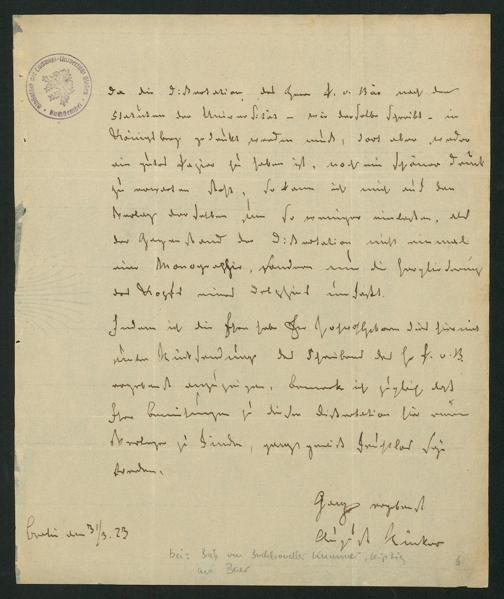 Da die Dissertation des Herrn F. v. Bär nach den
Statuten der Universität – wie derselbe schreibt – in
Königsberg gedruckt werden muß, dort aber weder
ein gutes Papier zu haben ist, noch ein schöner Druck
zu erwarten steht, so kann ich mich auf den
Verlag derselben um so weniger einlassen, als
der Gegenstand der Dissertation nicht einmal
eine Monographie, sondern nur die Zergliederung
des Kopfs eines umfaßt.
Indem ich die Ehre habe Ew Hochwohlgeboren dies hiermit
unter Rücksendung des Schreibens des H F. v. B
ergebenst anzuzeigen, bemerke ich zugleich daß
Ihre Bemühungen zu dieser Dissertation für einen
Verleger zu finden, ganz gewiß fruchtlos sein
werden.
Ganz ergebenst
August Rücker
Berlin am 31/3. 23
bei: Brf. von Buchhändler Kummer, Leipzig
an Baer
6